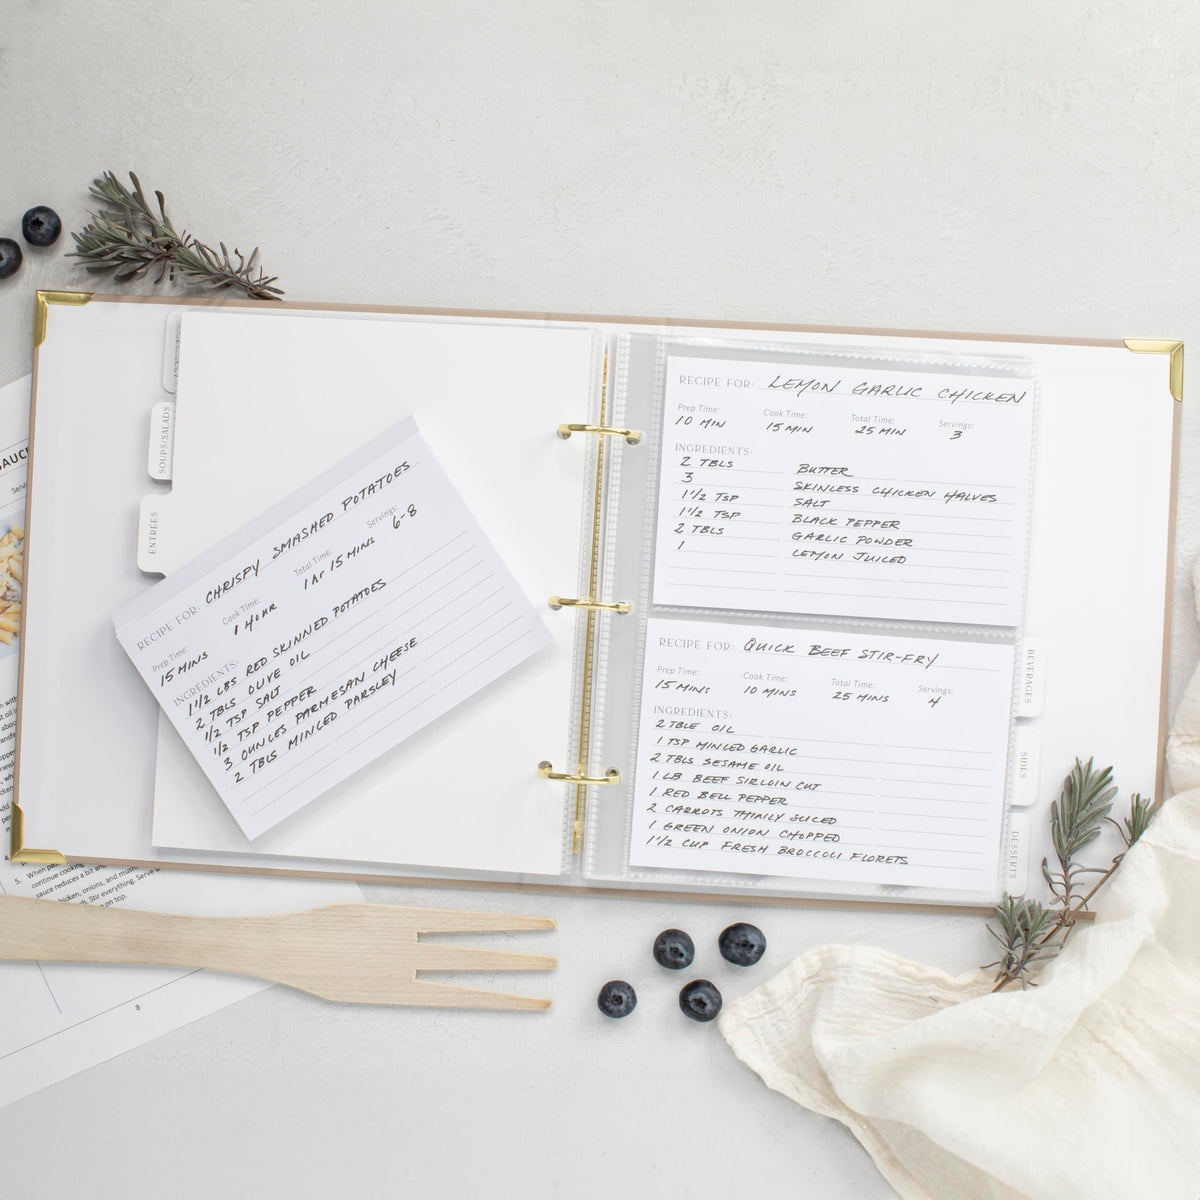 SOUPS/SALADS
ENTRÉES
RECIPE FOR: CHRISPY SMASHED POTATOES
Prep Time: Cook Time: Total Time: Servings:
15 MINS 1 HOUR 1 Hr 15 MINS 6-8
INGREDIENTS:
1 1/2 LBS RED SKINNED POTATOES
2 TBLS OLIVE OIL
1/2 TSP SALT
1/2 TSP PEPPER
3 OUNCES PARMESAN CHEESE
2 TBLS MINCED PARSLEY
RECIPE FOR: LEMON GARLIC CHICKEN
Prep Time: Cook Time: Total Time: Servings:
10 MIN 15 MIN 25 MIN 3
INGREDIENTS:
2 TBLS BUTTER
3 SKINLESS CHICKEN HALVES
1 1/2 TSP SALT
1 1/2 TSP BLACK PEPPER
2 TBLS GARLIC POWDER
1 LEMON JUICED
RECIPE FOR: QUICK BEEF STIR-FRY
Prep Time: Cook Time: Total Time: Servings:
15 MINS 10 MINS 25 MINS 4
INGREDIENTS:
2 TBLE OIL
1 TSP MINCED GARLIC
2 TBLS SESAME OIL
1 LB BEEF SIRLOIN CUT
1 RED BELL PEPPER
2 CARROTS THINLY SLICED
1 GREEN ONION CHOPPED
1 1/2 CUP FRESH BROCCOLI FLORETS
BEVERAGES
SIDES
DESSERTS
continue cooking
sauce reduces a bit and
onions, and
Stir everything. Serve
on top.
8